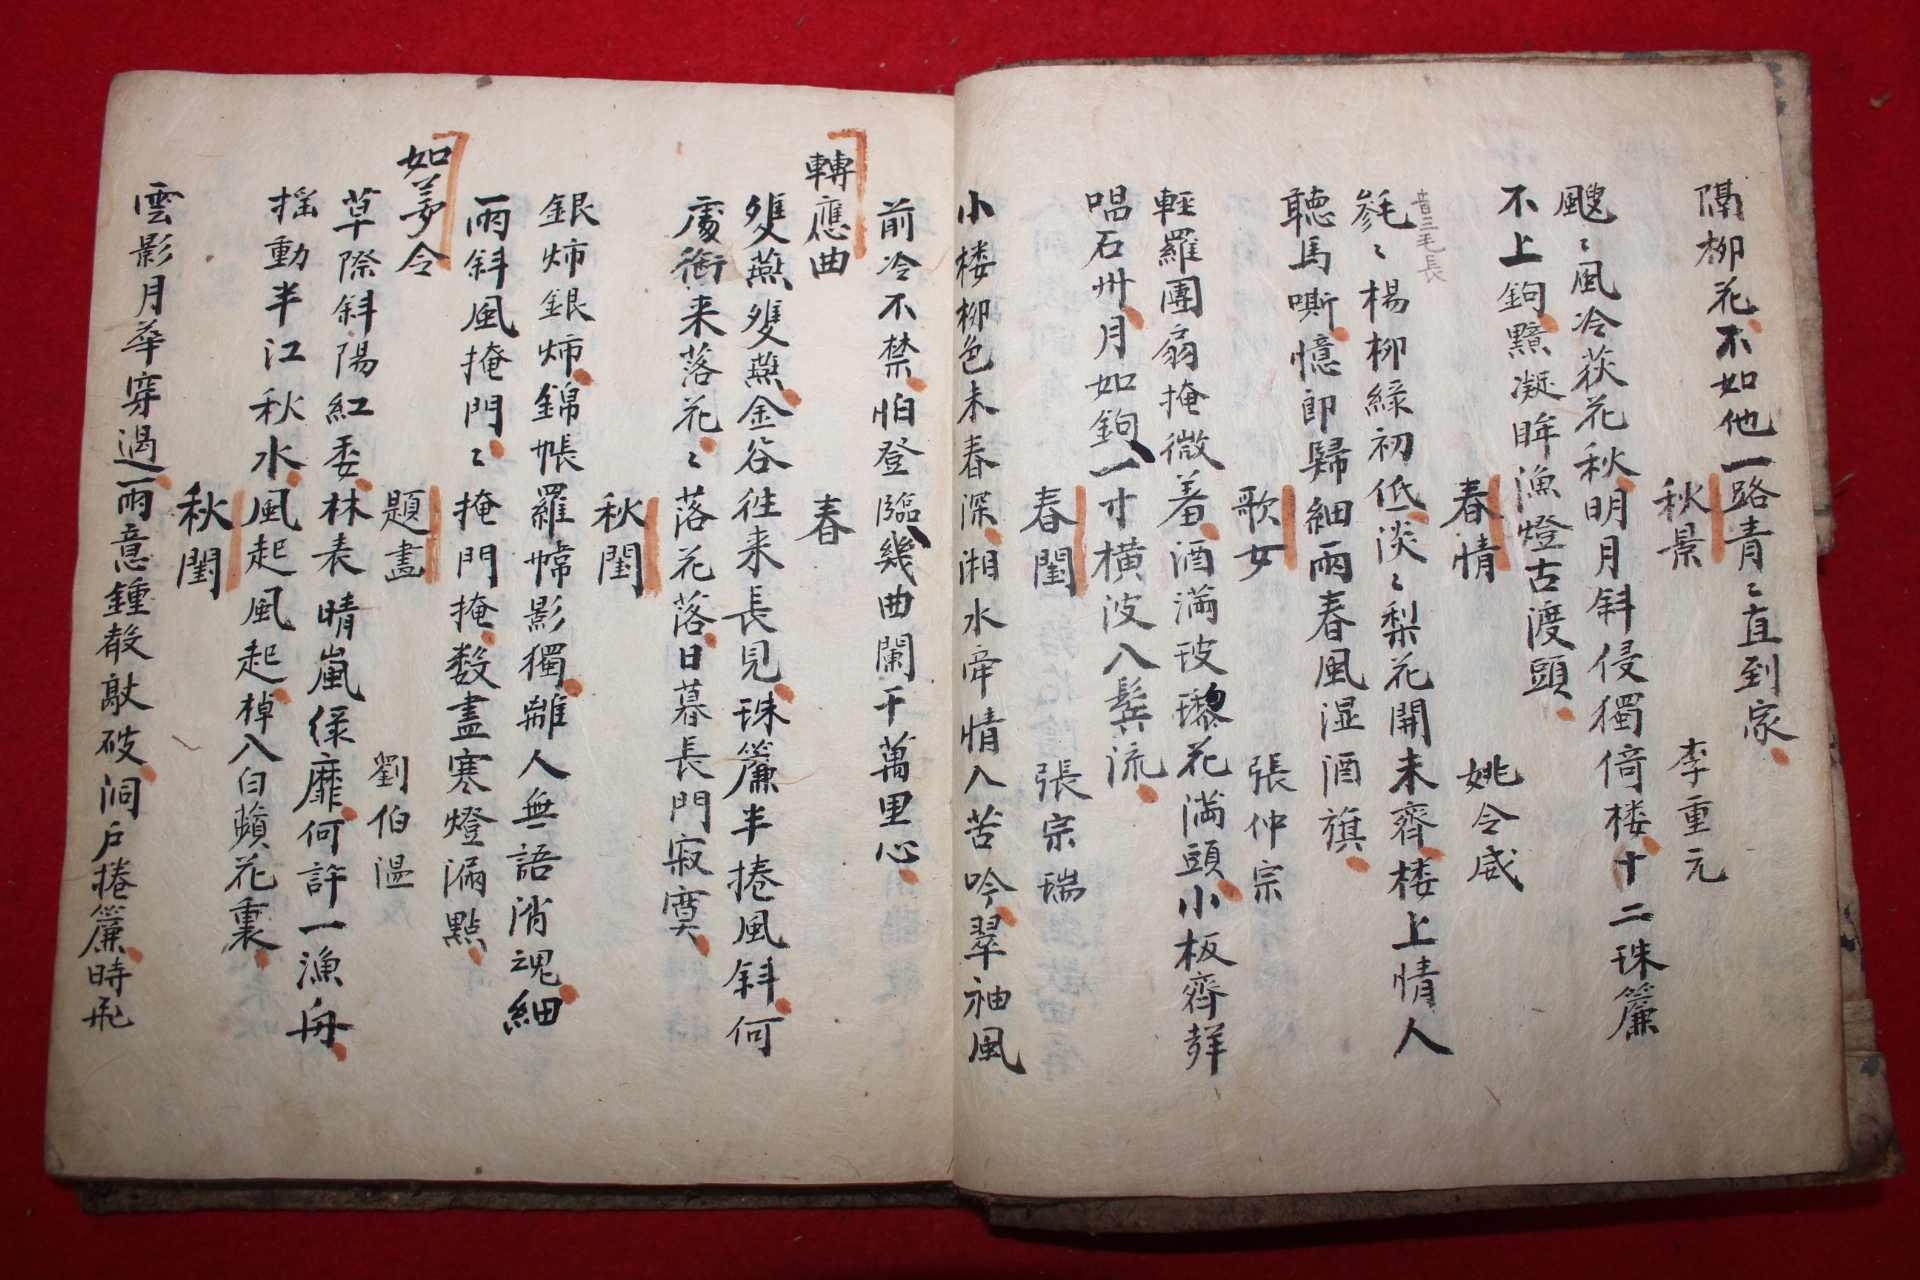 隔柳花不如他一路青〻直到家
秋景 李重元
颼〻風冷荻花秋明月斜侵獨倚楼十二珠簾
不上鉤黯凝眸漁燈古渡頭
春情 姚令威
毿〻楊柳緑初低淡〻梨花開未齊楼上情人
音三毛長
聴馬嘶憶郎歸細雨春風湿酒旗
歌女 張仲宗
輕羅團扇掩微羞酒満玻瓈花満頭小板齊聲
唱石州月如鉤一寸横波入鬂流
春閨 張宗瑞
小楼柳色未春深湘水牵情入苦吟翠袖風
前冷不禁怕登臨幾曲闌干萬里心
轉應曲 春
雙燕雙燕金谷徃来長見珠簾半捲風斜何
處衔来落花〻落花落日暮長門寂寞
秋閨
銀烛銀烛錦帳羅幃影獨離人無語消魂細
雨斜風掩門〻掩門掩数盡寒燈漏點
如夢令 題畵 劉伯温
草際斜陽紅委林表晴嵐緑靡何許一漁舟
揺動半江秋水風起風起棹入白蘋花裏
秋閨
雲影月華穿過雨意鍾聲敲破洞戶捲簾時飛